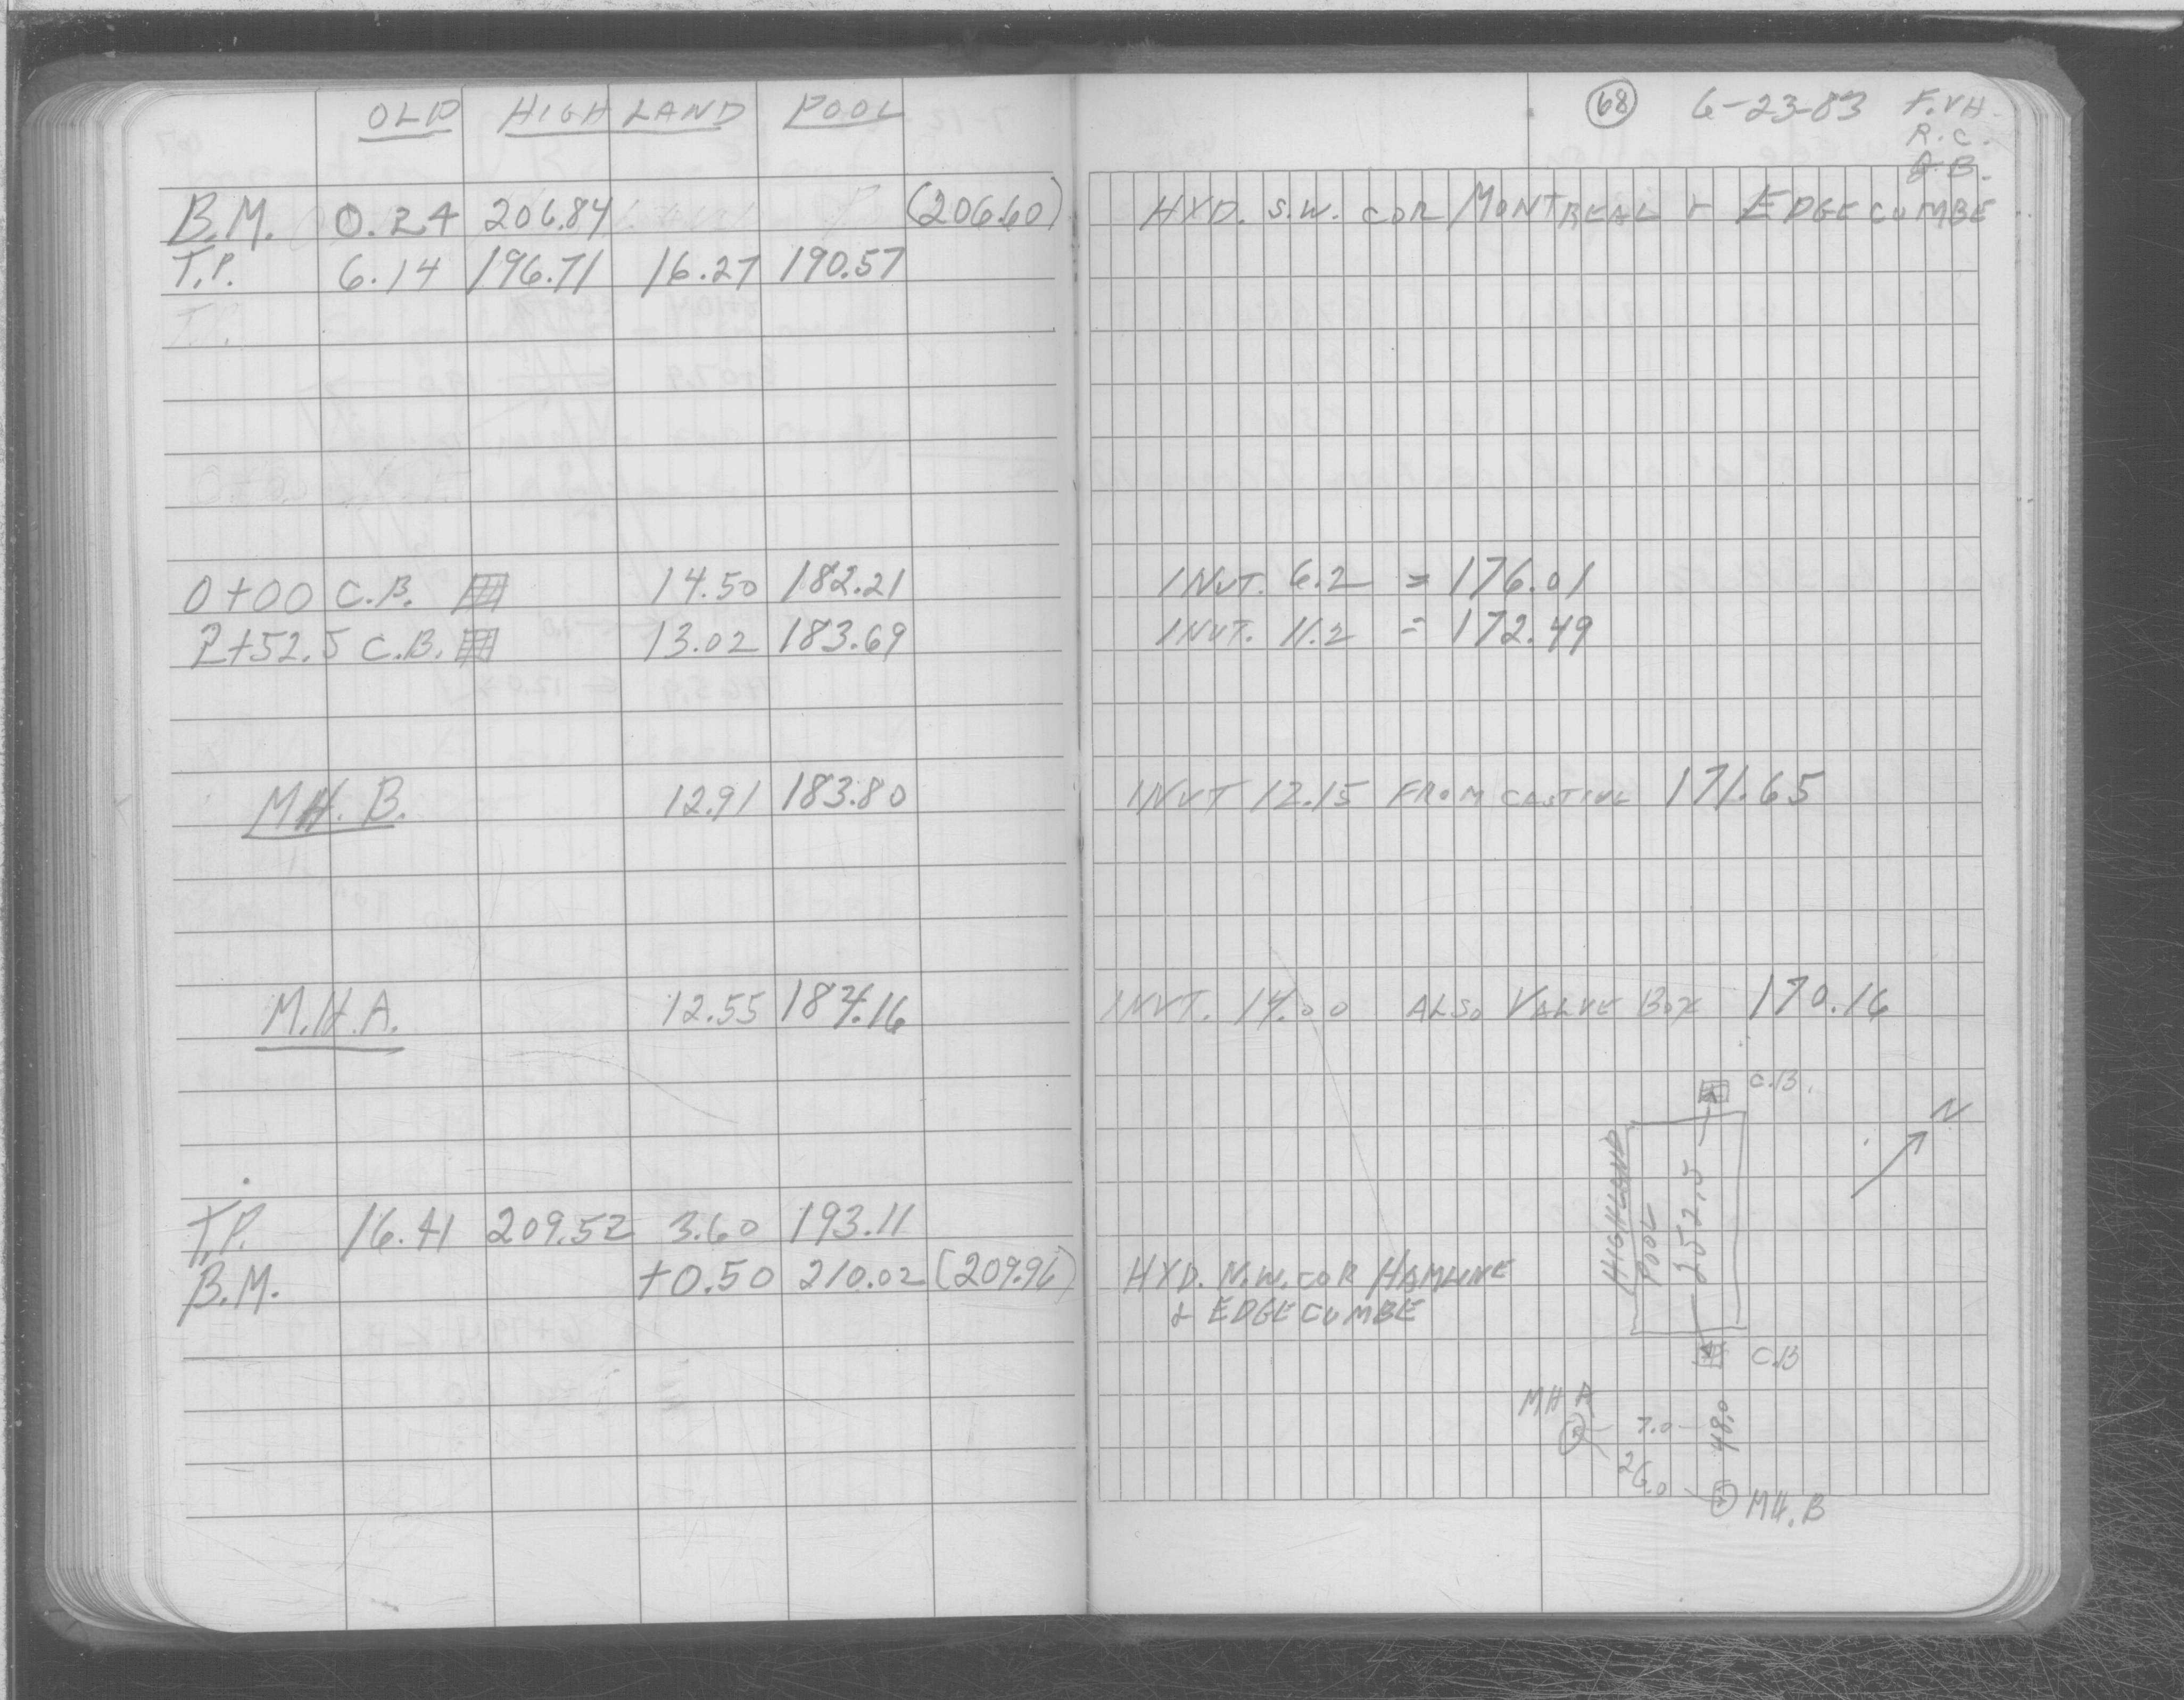 OLD HIGHLAND POOL
B.M. 0.24 206.84 (206.60)
T.P. 6.14 196.71 16.27 190.57
T.P.
0+00 C.B. 14.50 182.21
2+52.5 C.B. 13.02 183.69
MH. B. 12.91 183.80
M.H.A. 12.55 184.16
T.P. 16.41 209.52 3.60 193.11
B.M. +0.50 210.02 (209.96)
68 6-23-83 F.VH.
R.C.
HYD. S.W. COR MONTREAL + EDGECUMBE
INVT. 6.2 = 176.01
INVT. 11.2 = 172.49
INVT 12.15 FROM CASTING 171.65
INVT. 14.00 ALSO VALVE BOX 170.16
C.B.
N
HIGHLAND
POOL
252.5
HYD. N.W. COR HAMLINE
& EDGECUMBE
C.B
MH A
7.0
48.0
26.0
MH. B